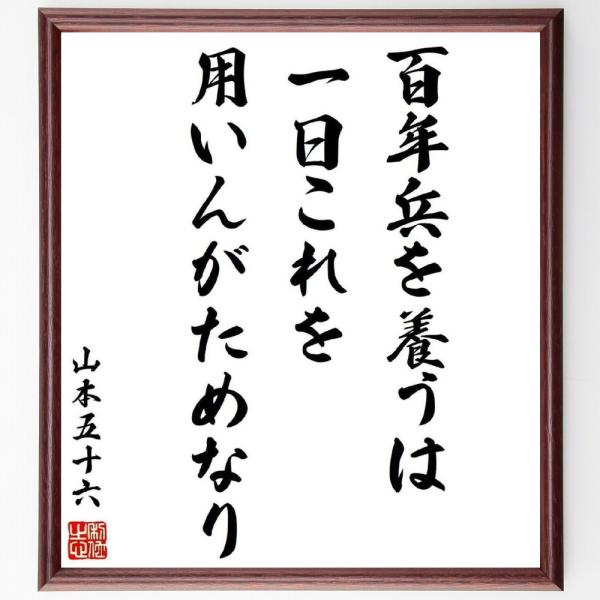 百年兵を養うは
一日これを
用いんがためなり
山本五十六